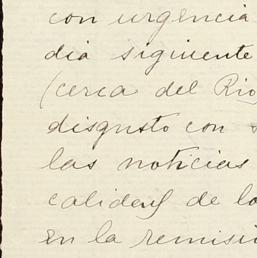 con urgencia
dia siguiente
(cerca del Rio
disgusto con
las noticias
de lo
en la remisi